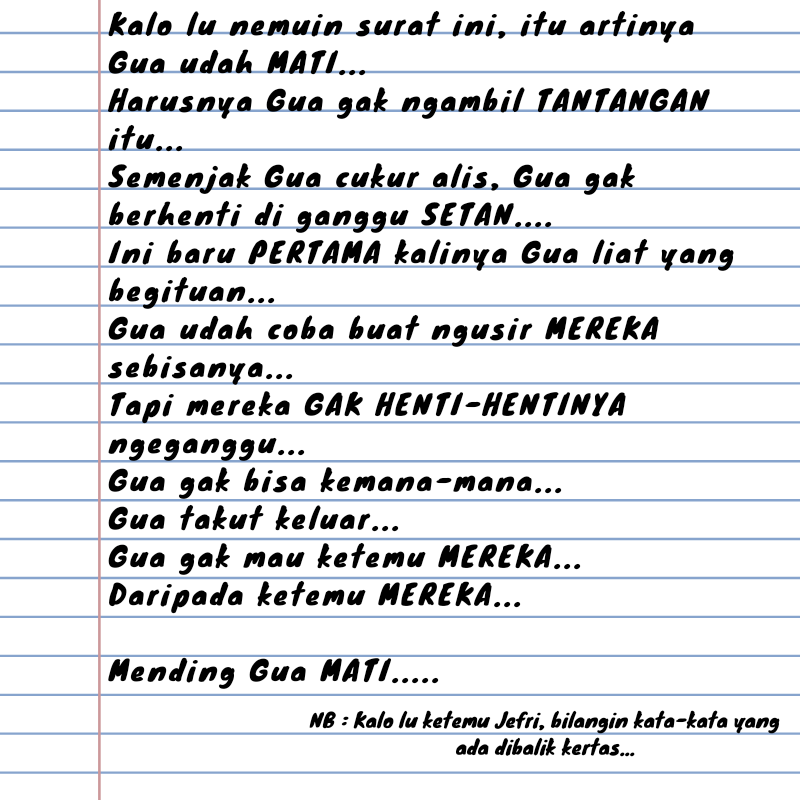 Kalo lu nemuin surat ini, itu artinya
Gua udah MATI...
Harusnya Gua gak ngambil TANTANGAN
itu...
Semenjak Gua cukur alis, Gua gak
berhenti di ganggu SETAN....
Ini baru PERTAMA kalinya Gua liat yang
begituan...
Gua udah coba buat ngusir MEREKA
sebisanya...
Tapi mereka GAK HENTI-HENTINYA
ngeganggu...
Gua gak bisa kemana-mana...
Gua takut keluar...
Gua gak mau ketemu MEREKA...
Daripada ketemu MEREKA...
Mending Gua MATI.....
NB : Kalo lu ketemu Jefri, bilangin kata-kata yang
ada dibalik kertas...